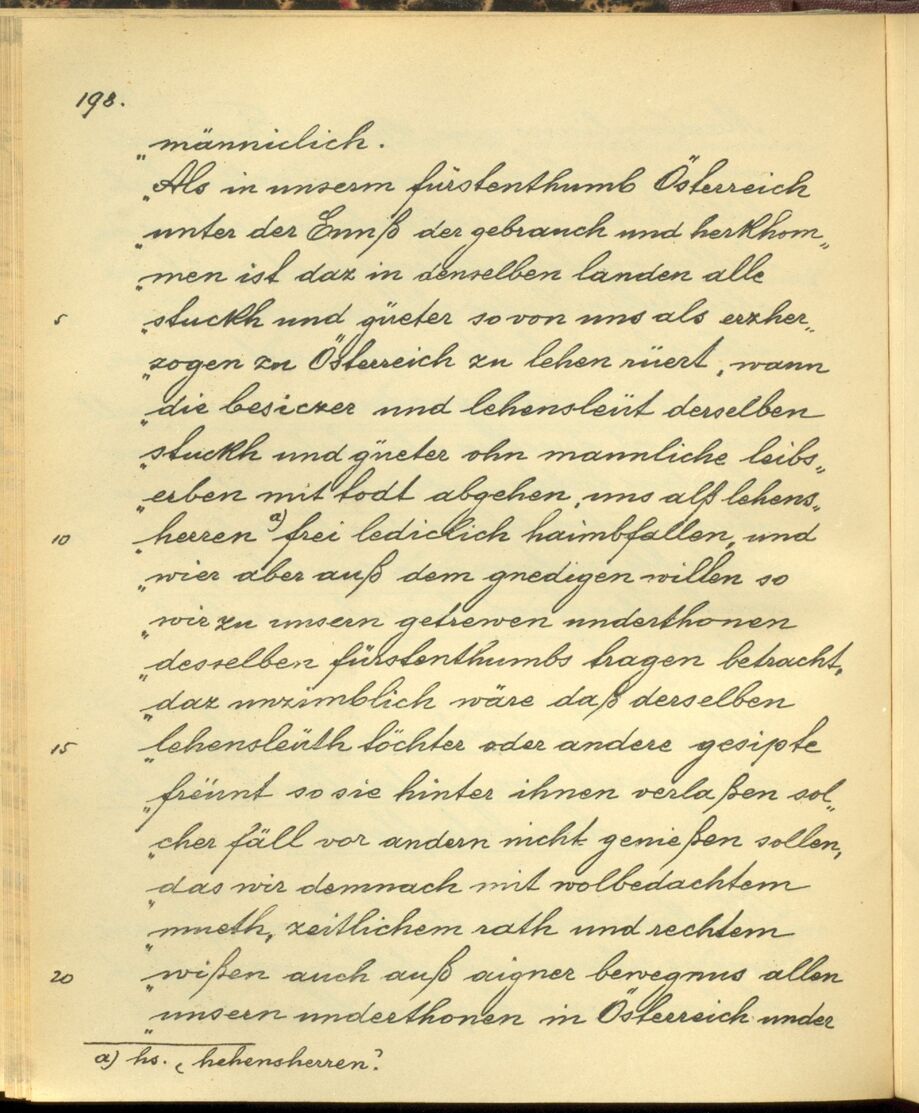 198.
„männiclich.
„Als in unserm fürstenthumb Österreich
„unter der Ennß der gebrauch und herkhom„
„men ist daz in denselben landen alle
5 „stuckh und güeter so von uns als erzher„
„zogen zu Österreich zu lehen rüert, wann
„die besiczer und lehensleüt derselben
„stuckh und güeter ohn mannliche leibs„
„erben mit todt abgehen, uns alß lehens„
10 „herren a) frei lediclich haimbfallen, und
„wier aber auß dem gnedigen willen so
„wir zu unsern getrewen underthonen
„desselben fürstenthumbs tragen betracht,
„daz unzimblich wäre daß derselben
15 „lehensleüth töchter oder andere gesipte
„freünt so sie hinter ihnen verlaßen sol„
„cher fäll vor andern nicht genießen sollen,
„das wir demnach mit wolbedachtem
„mueth, zeitlichem rath und rechtem
20 „wißen auch auß aigner bewegnus allen
„unsern underthonen in Österreich under
a) hs. „hehensherren".